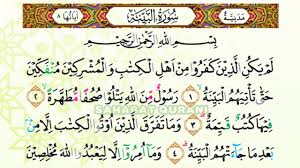 مَدَنِيَّة سُورَةُ الْبَيِّنَةِ اٰيَاتُهَا ٨
بِسْمِ اللّٰهِ الرَّحْمٰنِ الرَّحِيْمِ
لَمْ يَكُنِ الَّذِيْنَ كَفَرُوْا مِنْ اَهْلِ الْكِتٰبِ وَالْمُشْرِكِيْنَ مُنْفَكِّيْنَ
حَتّٰى تَأْتِيَهُمُ الْبَيِّنَةُ ۙ ١ رَسُوْلٌ مِّنَ اللّٰهِ يَتْلُوْا صُحُفًا مُّطَهَّرَةً ۙ ٢
فِيْهَا كُتُبٌ قَيِّمَةٌ ۗ ٣ وَمَا تَفَرَّقَ الَّذِيْنَ اُوْتُوا الْكِتٰبَ اِلَّا مِنْۢ
بَعْدِ مَا جَاۤءَتْهُمُ الْبَيِّنَةُ ۗ ٤ وَمَآ اُمِرُوْٓا اِلَّا لِيَعْبُدُوا اللّٰهَ مُخْلِصِيْنَ